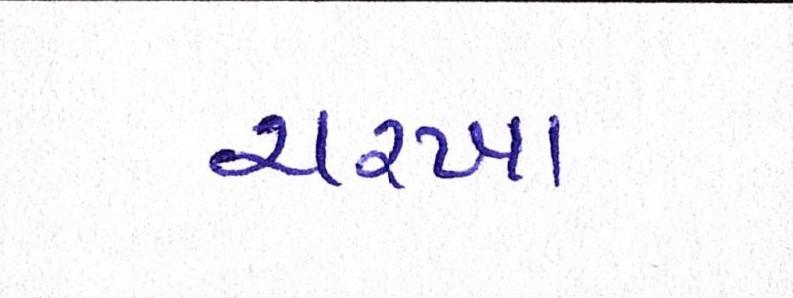 ચરખા